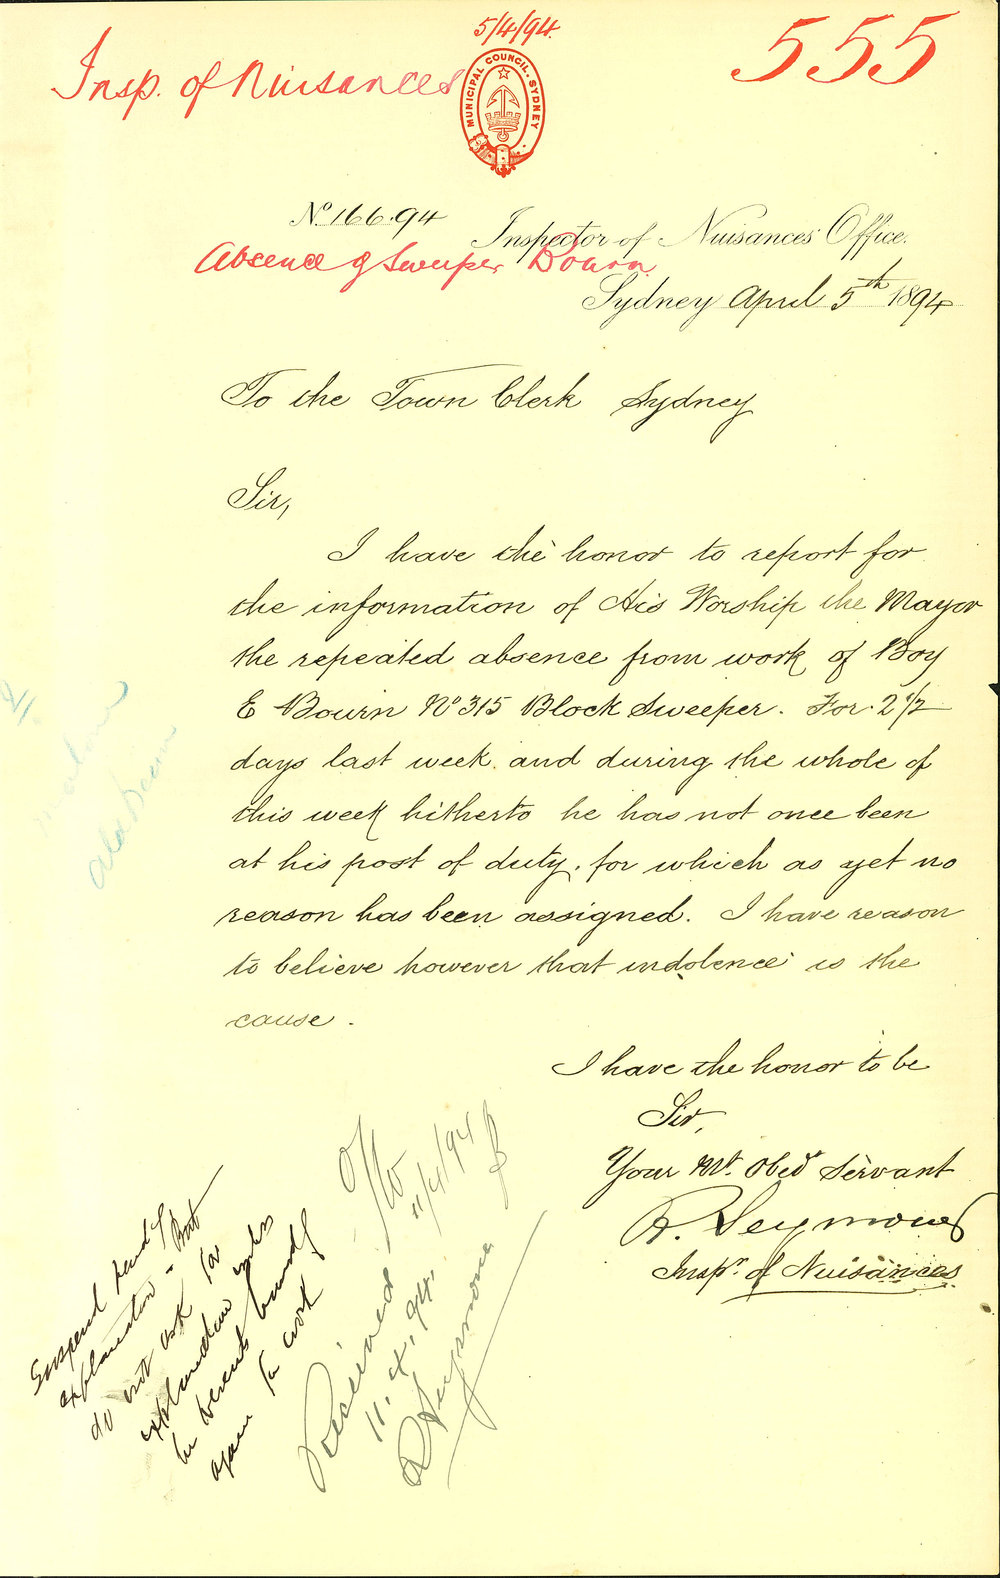 5/4/94.
Insp. of Nuisances
555
MUNICIPAL COUNCIL. SYDNEY
No. 166.94
Inspector of Nuisances Office.
Absence of Sweeper Bourn
Sydney April 5th 1894
To the Town Clerk Sydney
Sir,
I have the honor to report for
the information of His Worship the Mayor
the repeated absence from work of Boy
E Bourn No 315 Block Sweeper. For 2 1/2
days last week and during the whole of
this week hitherto he has not once been
at his post of duty, for which as yet no
reason has been assigned. I have reason
to believe however that indolence is the
cause.
I have the honor to be
Sir,
Your Mt. Obedt Servant
R. Seymour
Inspr. of Nuisances
Suspend pending
explanation - But
do not ask for
explanation unless
he presents himself
again for work
11/4/94
Received
11.4.94.
R Seymour